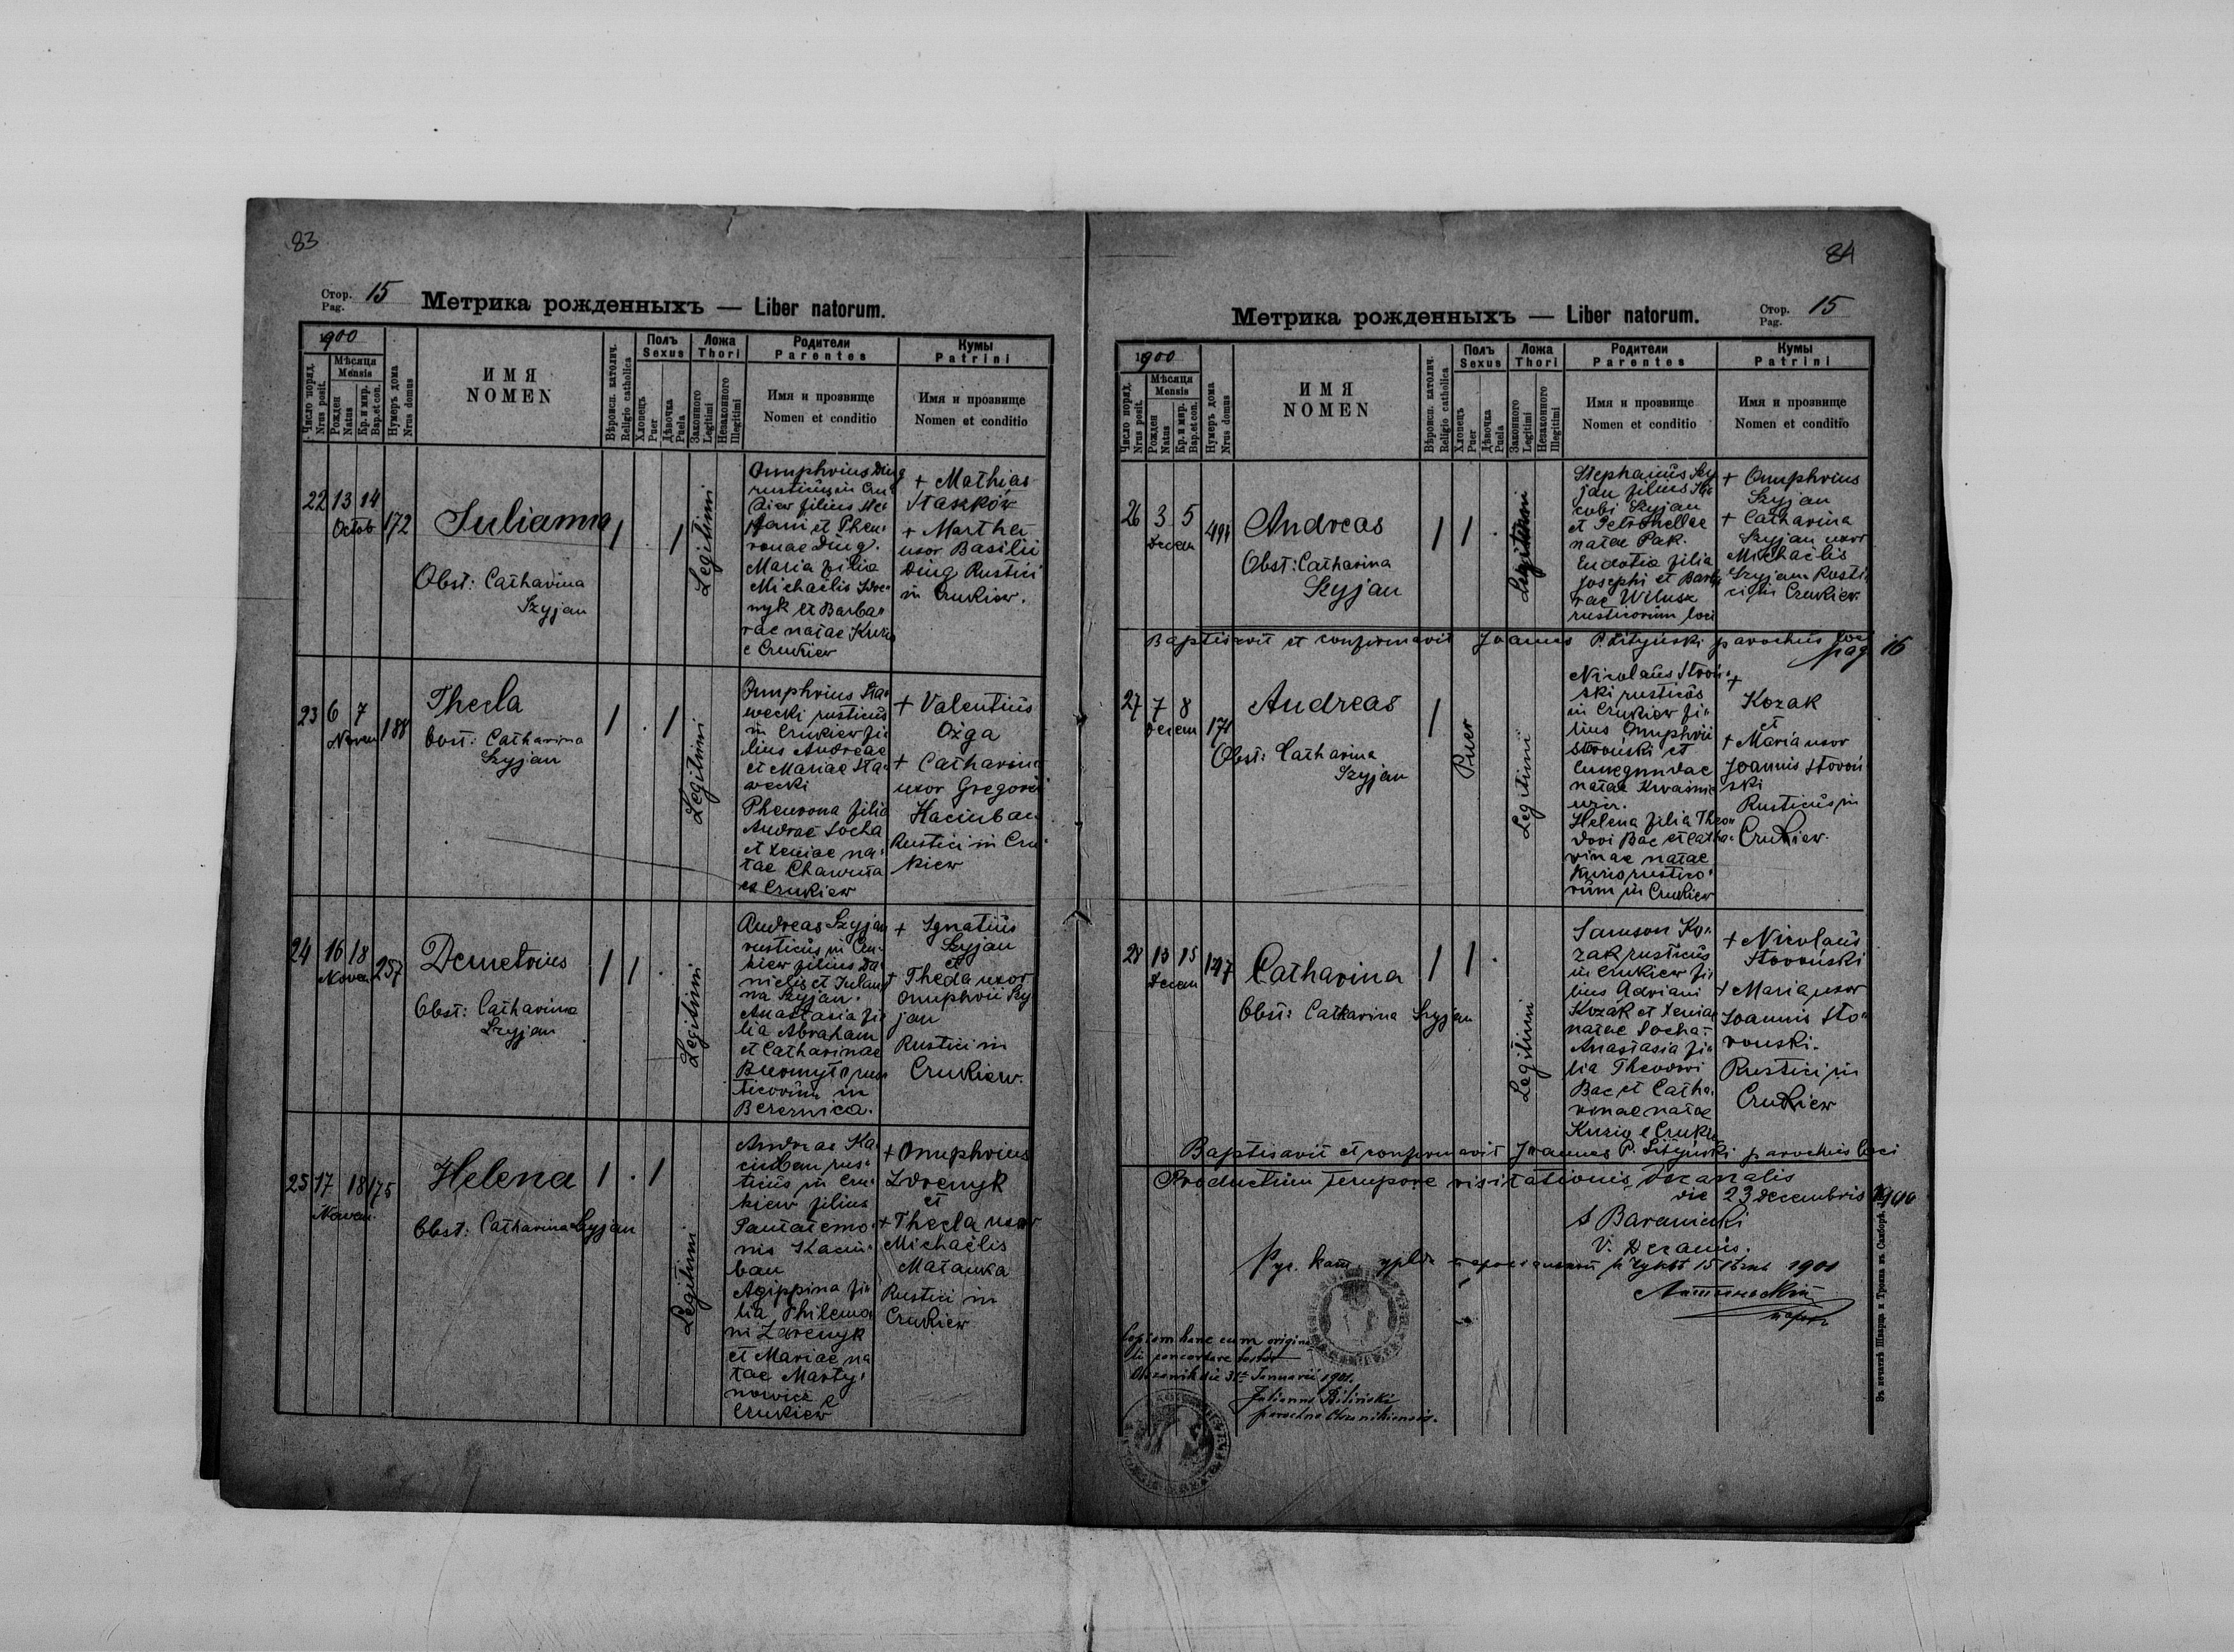 83
Стор. 15
Pag.
Метрика рожденныхъ — Liber natorum.
1900
Число поряд.
Nrus posit.
Мѣсяця
Mensis
Рожден
Natus
Кр. и мир.
Bap. et con.
Нумеръ дома
Nrus domus
ИМЯ
NOMEN
Вѣроисп. католич.
Religio catholica
Полъ
Sexus
Хлопецъ
Puer
Дѣвочка
Puela
Ложа
Thori
Законного
Legitimi
Незаконного
Illegitimi
Родители
Parentes
Имя и прозвище
Nomen et conditio
Кумы
Patrini
Имя и прозвище
Nomen et conditio
22 13 14
Octob 172
Julianna
1 . 1
Legitimi
Obst: Catharina
Szyjan
Onuphrius Ding
rusticus in Cru
kiew filius Ste
fani et Pheu
ronae Ding.
Maria filia
Michaëlis Zdre
nyk et Barba
rae natae Kuzio
e Crukiew
+ Mathias
Staszków
+ Martha
uxor Basilii
Ding Rustici
in Crukiew.
23 6 7
Novem 188
Thecla
1 . 1
Legitimi
Obst: Catharina
Szyjan
Onuphrius Sta
wecki rusticus
in Crukiew fi
lius Andreae
et Mariae Sta
wecki
Pheurona filia
Andrae Socha
et Xeniae na
tae Chawuta
ex Crukiew
+ Valentius
Ożga
+ Catharina
uxor Gregorii
Kaciuban
Rustici in Cru
kiew
24 16 18
Novem 257
Demetrius
1 1 .
Legitimi
Obst: Catharina
Szyjan
Andreas Szyjan
rusticus in Cru
kiew filius Da
nielis et Julian
na Szyjan.
Anastasia fi
lia Abraham
et Catharinae
rus
ticorum in
Bereznica.
+ Ignatius
Szyjan
et
+ Thecla uxor
Onuphrii Szy
jan
Rustici in
Crukiew.
25 17 18 175
Novem.
Helena
1 . 1
Legitimi
Obst: Catharina Szyjan
Andreas Ka
ciuban rus
ticus in Cru
kiew filius
Pantatemo
nis Kaciu
ban
Agippina fi
lia Philemo
ni Zdrenyk
et Mariae na
tae Marty
nowicz e
Crukiew
+ Onuphrius
Zdrenyk
et
+ Thecla uxor
Michaëlis
Matawka
Rustici in
Crukiew
84
Метрика рожденныхъ — Liber natorum.
Стор. 15
Pag.
1900
Число поряд.
Nrus posit.
Мѣсяця
Mensis
Рожден
Natus
Кр. и мир.
Bap. et con.
Нумеръ дома
Nrus domus
ИМЯ
NOMEN
Вѣроисп. католич.
Religio catholica
Полъ
Sexus
Хлопецъ
Puer
Дѣвочка
Puela
Ложа
Thori
Законного
Legitimi
Незаконного
Illegitimi
Родители
Parentes
Имя и прозвище
Nomen et conditio
Кумы
Patrini
Имя и прозвище
Nomen et conditio
26 3 5
Decem
Andreas
1 1 .
Legitimi
Obst: Catharina
Szyjan
Stephanus Szy
jan filius Ja
cobi Szyjan
et Petronellae
natae Pak.
Eudotia filia
Josephi et Barba
rae Wilusz
rusticorum loci
+ Onuphrius
Szyjan
+ Catharina
Szyjan uxor
Michaëlis
Szyjan Rusti
ci in Crukiew
Baptisavit et confirmavit Joannes P. Lityński parochus loci
pag 15
27 7 8
Decem 171
Andreas
1
Puer
Legitimi
Obst: Catharina
Szyjan
Nicolaus Stroń
ski rusticus
in Crukiew fi
lius Onuphrii
Stroński et
Cunegundae
natae
Helena filia Theo
dori Bac et Catha
rinae natae
Kuzio rustico
rum in Crukiew
+
Kozak
et
+ Maria uxor
Joannis Storoń
ski
Rusticus in
Crukiew.
28 13 15
Decem 147
Catharina
1 1 .
Legitimi
Obst: Catharina Szyjan
Samson Ko
zak rusticus
in Crukiew fi
lius Adriani
Kozak et Xeniae
natae Socha.
Anastasia fi
lia Theodori
Bac et Catha
rinae natae
Kuzio e Cruki
+ Nicolaus
Storoński
+ Maria uxor
Joannis Sto
roński.
Rustici in
Crukiew
Baptisavit et confirmavit Joannes P. Lityński parochus loci
Productum tempore visitationis Decanalis
die 23 decembris 1900
Baraniecki
V. Decanus.
1901
Copiam hanc cum origina
li concordare testor
die 31 Januarii 1901.
Julianus Biliński
parochus
Въ печатнѣ Шварца и Трояна въ Самборѣ.